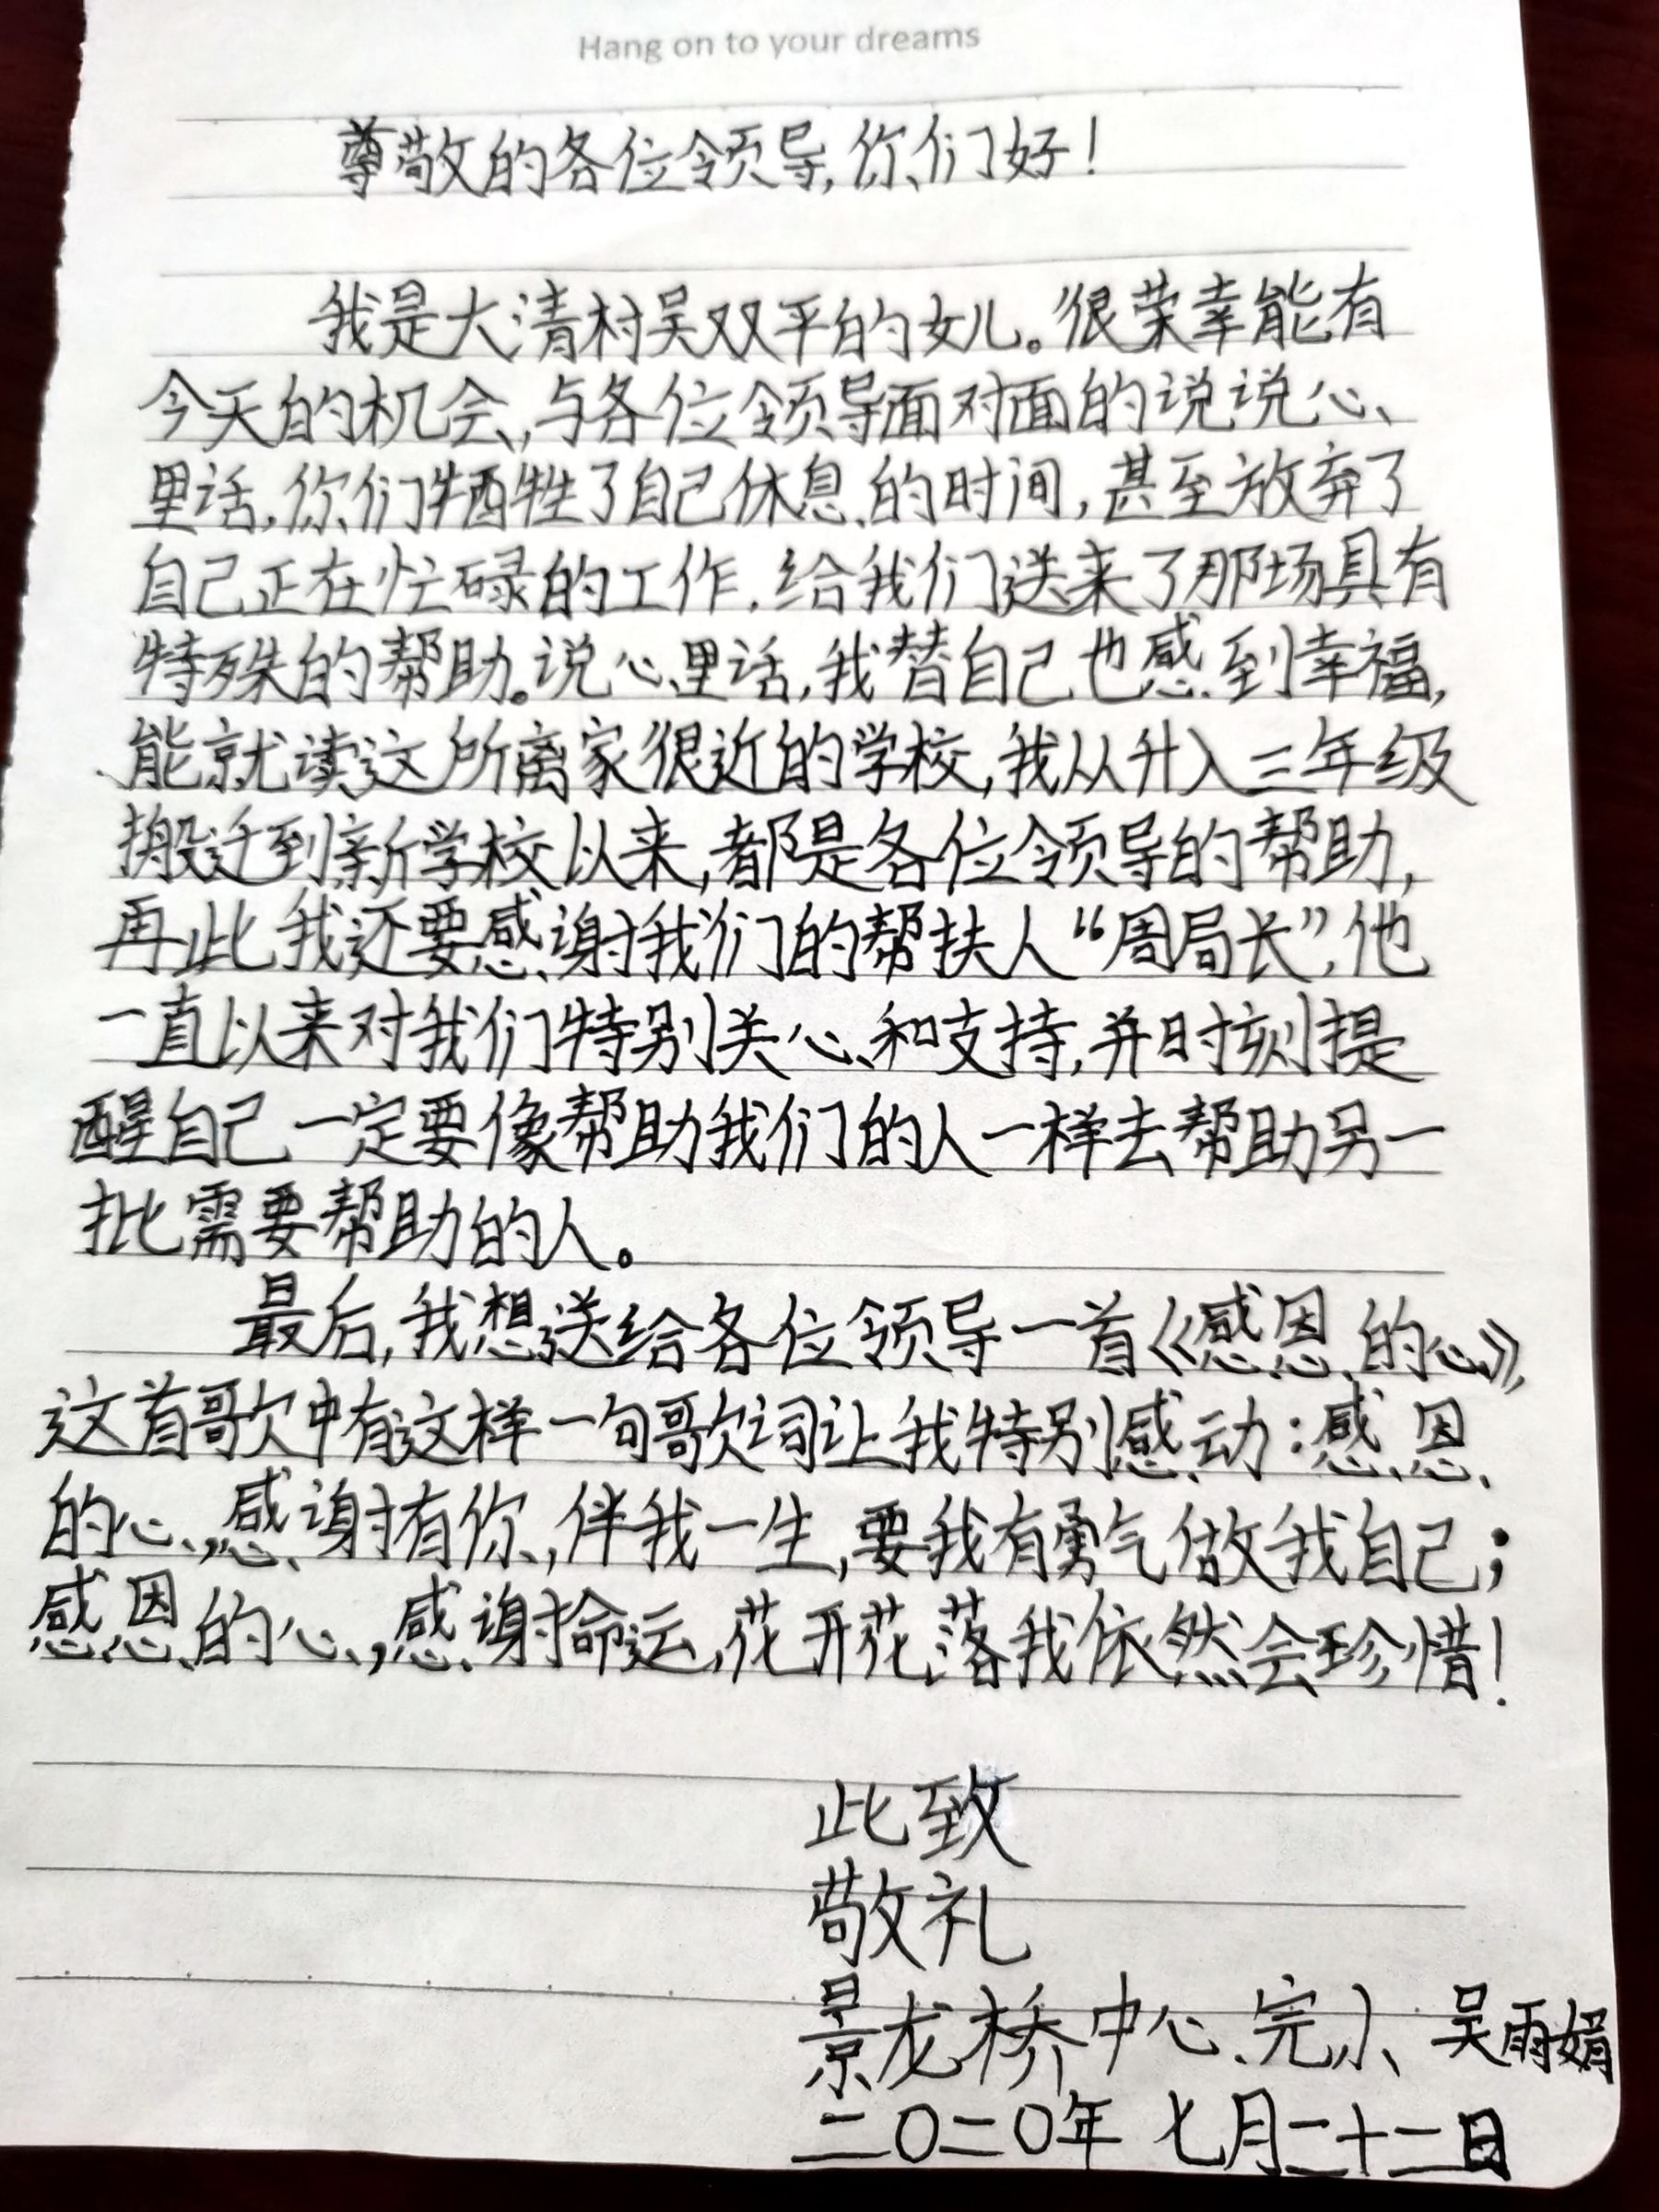 Hang on to your dreams
尊敬的各位领导,你们好!
我是大清村吴双平的女儿。很荣幸能有
今天的机会,与各位领导面对面的说说心
里话,你们牺牲了自己休息的时间,甚至放弃了
自己正在忙碌的工作.给我们送来了那场具有
特殊的帮助。说心里话,我替自己也感到幸福,
能就读这所离家很近的学校,我从升入三年级
搬迁到新学校以来,都是各位领导的帮助,
再此我还要感谢我们的帮扶人“周局长”,他
一直以来对我们特别关心和支持,并时刻提
醒自己一定要像帮助我们的人一样去帮助另一
批需要帮助的人。
最后,我想送给各位领导一首《感恩的心》,
这首歌中有这样一句歌词让我特别感动:感恩
的心,感谢有你,伴我一生,要我有勇气做我自己;
感恩的心,感谢命运,花开花落我依然会珍惜!
此致
敬礼
景龙桥中心完小 吴雨娟
二〇二〇年 七月二十二日